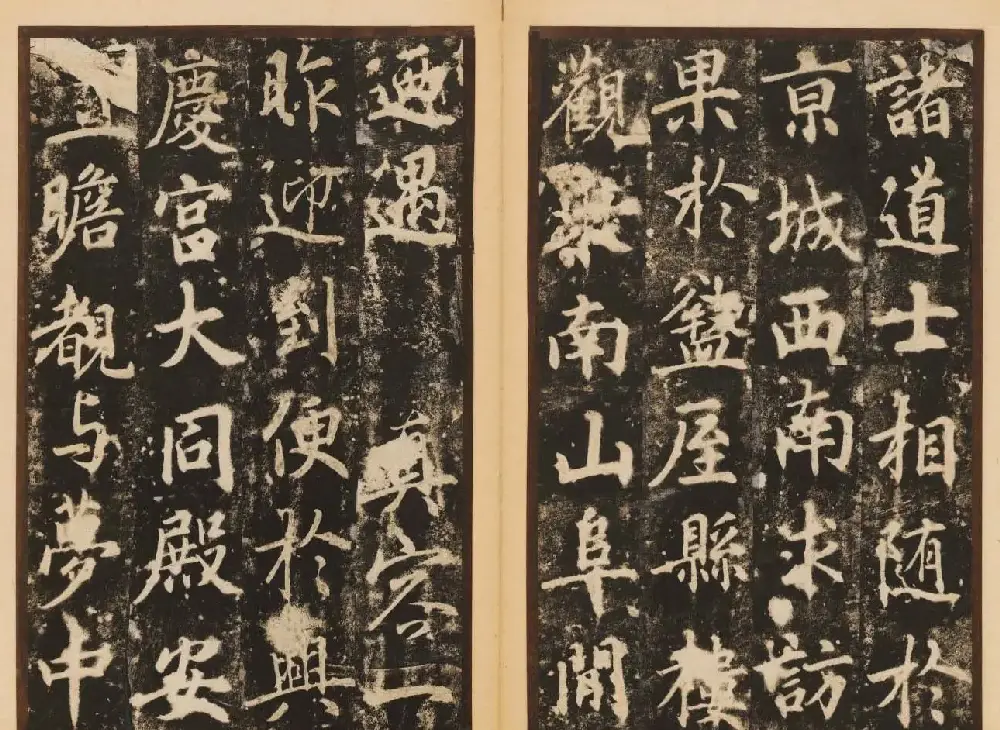 諸道士相随於
京城西南求訪
果於盩厔縣樓
觀東南山阜間
遇 真容一
昨迎到便於興
慶宮大同殿安
置瞻覩与夢中